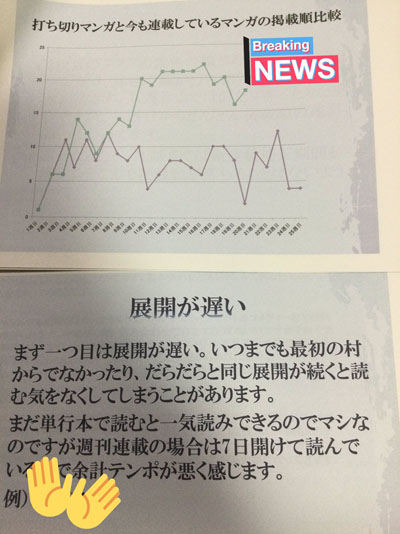 打ち切りマンガと今も連載しているマンガの掲載順比較
Breaking
NEWS
25
20
15
10
5
0
1週目 2週目 3週目 4週目 5週目 6週目 7週目 8週目 9週目 10週目 11週目 12週目 13週目 14週目 15週目 16週目 17週目 18週目 19週目 20週目 21週目 22週目 23週目 24週目 25週目
展開が遅い
まず一つ目は展開が遅い。いつまでも最初の村
からでなかったり、だらだらと同じ展開が続くと読
む気をなくしてしまうことがあります。
まだ単行本で読むと一気読みできるのでマシな
のですが週刊連載の場合は7日開けて読んで
い で余計テンポが悪く感じます。
例)